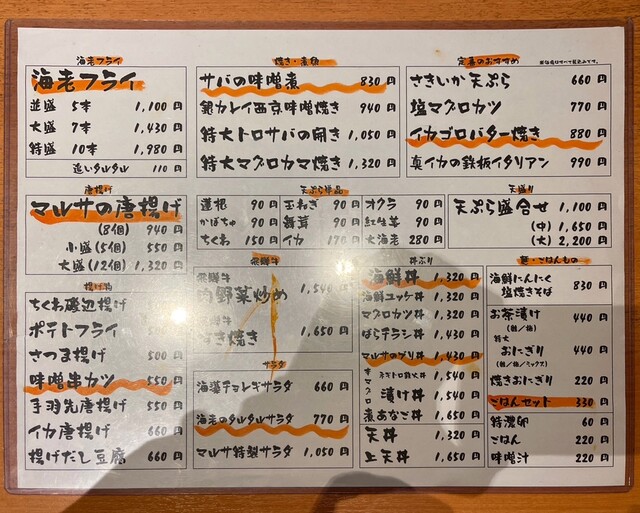 海老フライ
海老フライ
並盛 5本 1,100円
大盛 7本 1,430円
特盛 10本 1,980円
追いタルタル 110円
焼き・煮魚
サバの味噌煮 830円
銀カレイ西京味噌焼き 940円
特大トロサバの開き 1,050円
特大マグロカマ焼き 1,320円
定番のおすすめ
さきいか天ぷら 660円
塩マグロカツ 770円
イカゴロバター焼き 880円
真イカの鉄板イタリアン 990円
唐揚げ
マルサの唐揚げ
(8個) 940円
小盛(5個) 550円
大盛(12個) 1,320円
天ぷら単品
蓮根 90円 玉ねぎ 90円 オクラ 90円
かぼちゃ 90円 舞茸 90円 紅生姜 90円
ちくわ 150円 イカ 170円 大海老 280円
天盛り
天ぷら盛合せ 1,100円
(中) 1,650円
(大) 2,200円
揚げ物
ちくわ磯辺揚げ
ポテトフライ 500円
さつま揚げ 500円
味噌串カツ 550円
手羽先唐揚げ 550円
イカ唐揚げ 660円
揚げだし豆腐 660円
飛騨牛
飛騨牛
肉野菜炒め 1,540円
飛騨牛
すき焼き 1,650円
サラダ
海藻チョレギサラダ 660円
海老のタルタルサラダ 770円
マルサ特製サラダ 1,050円
丼ぶり
海鮮丼 1,320円
海鮮ユッケ丼 1,320円
マグロカツ丼 1,320円
ばらチラシ丼 1,430円
マルサのブリ丼 1,430円
ネギトロ鉄火丼 1,540円
漬け丼 1,540円
煮あなご丼 1,650円
天丼 1,320円
上天丼 1,650円
麺・ごはんもの
海鮮にんにく
塩焼きそば 830円
お茶漬け 440円
特大
おにぎり 440円
焼きおにぎり 220円
ごはんセット 330円
特濃卵 60円
ごはん 220円
味噌汁 220円